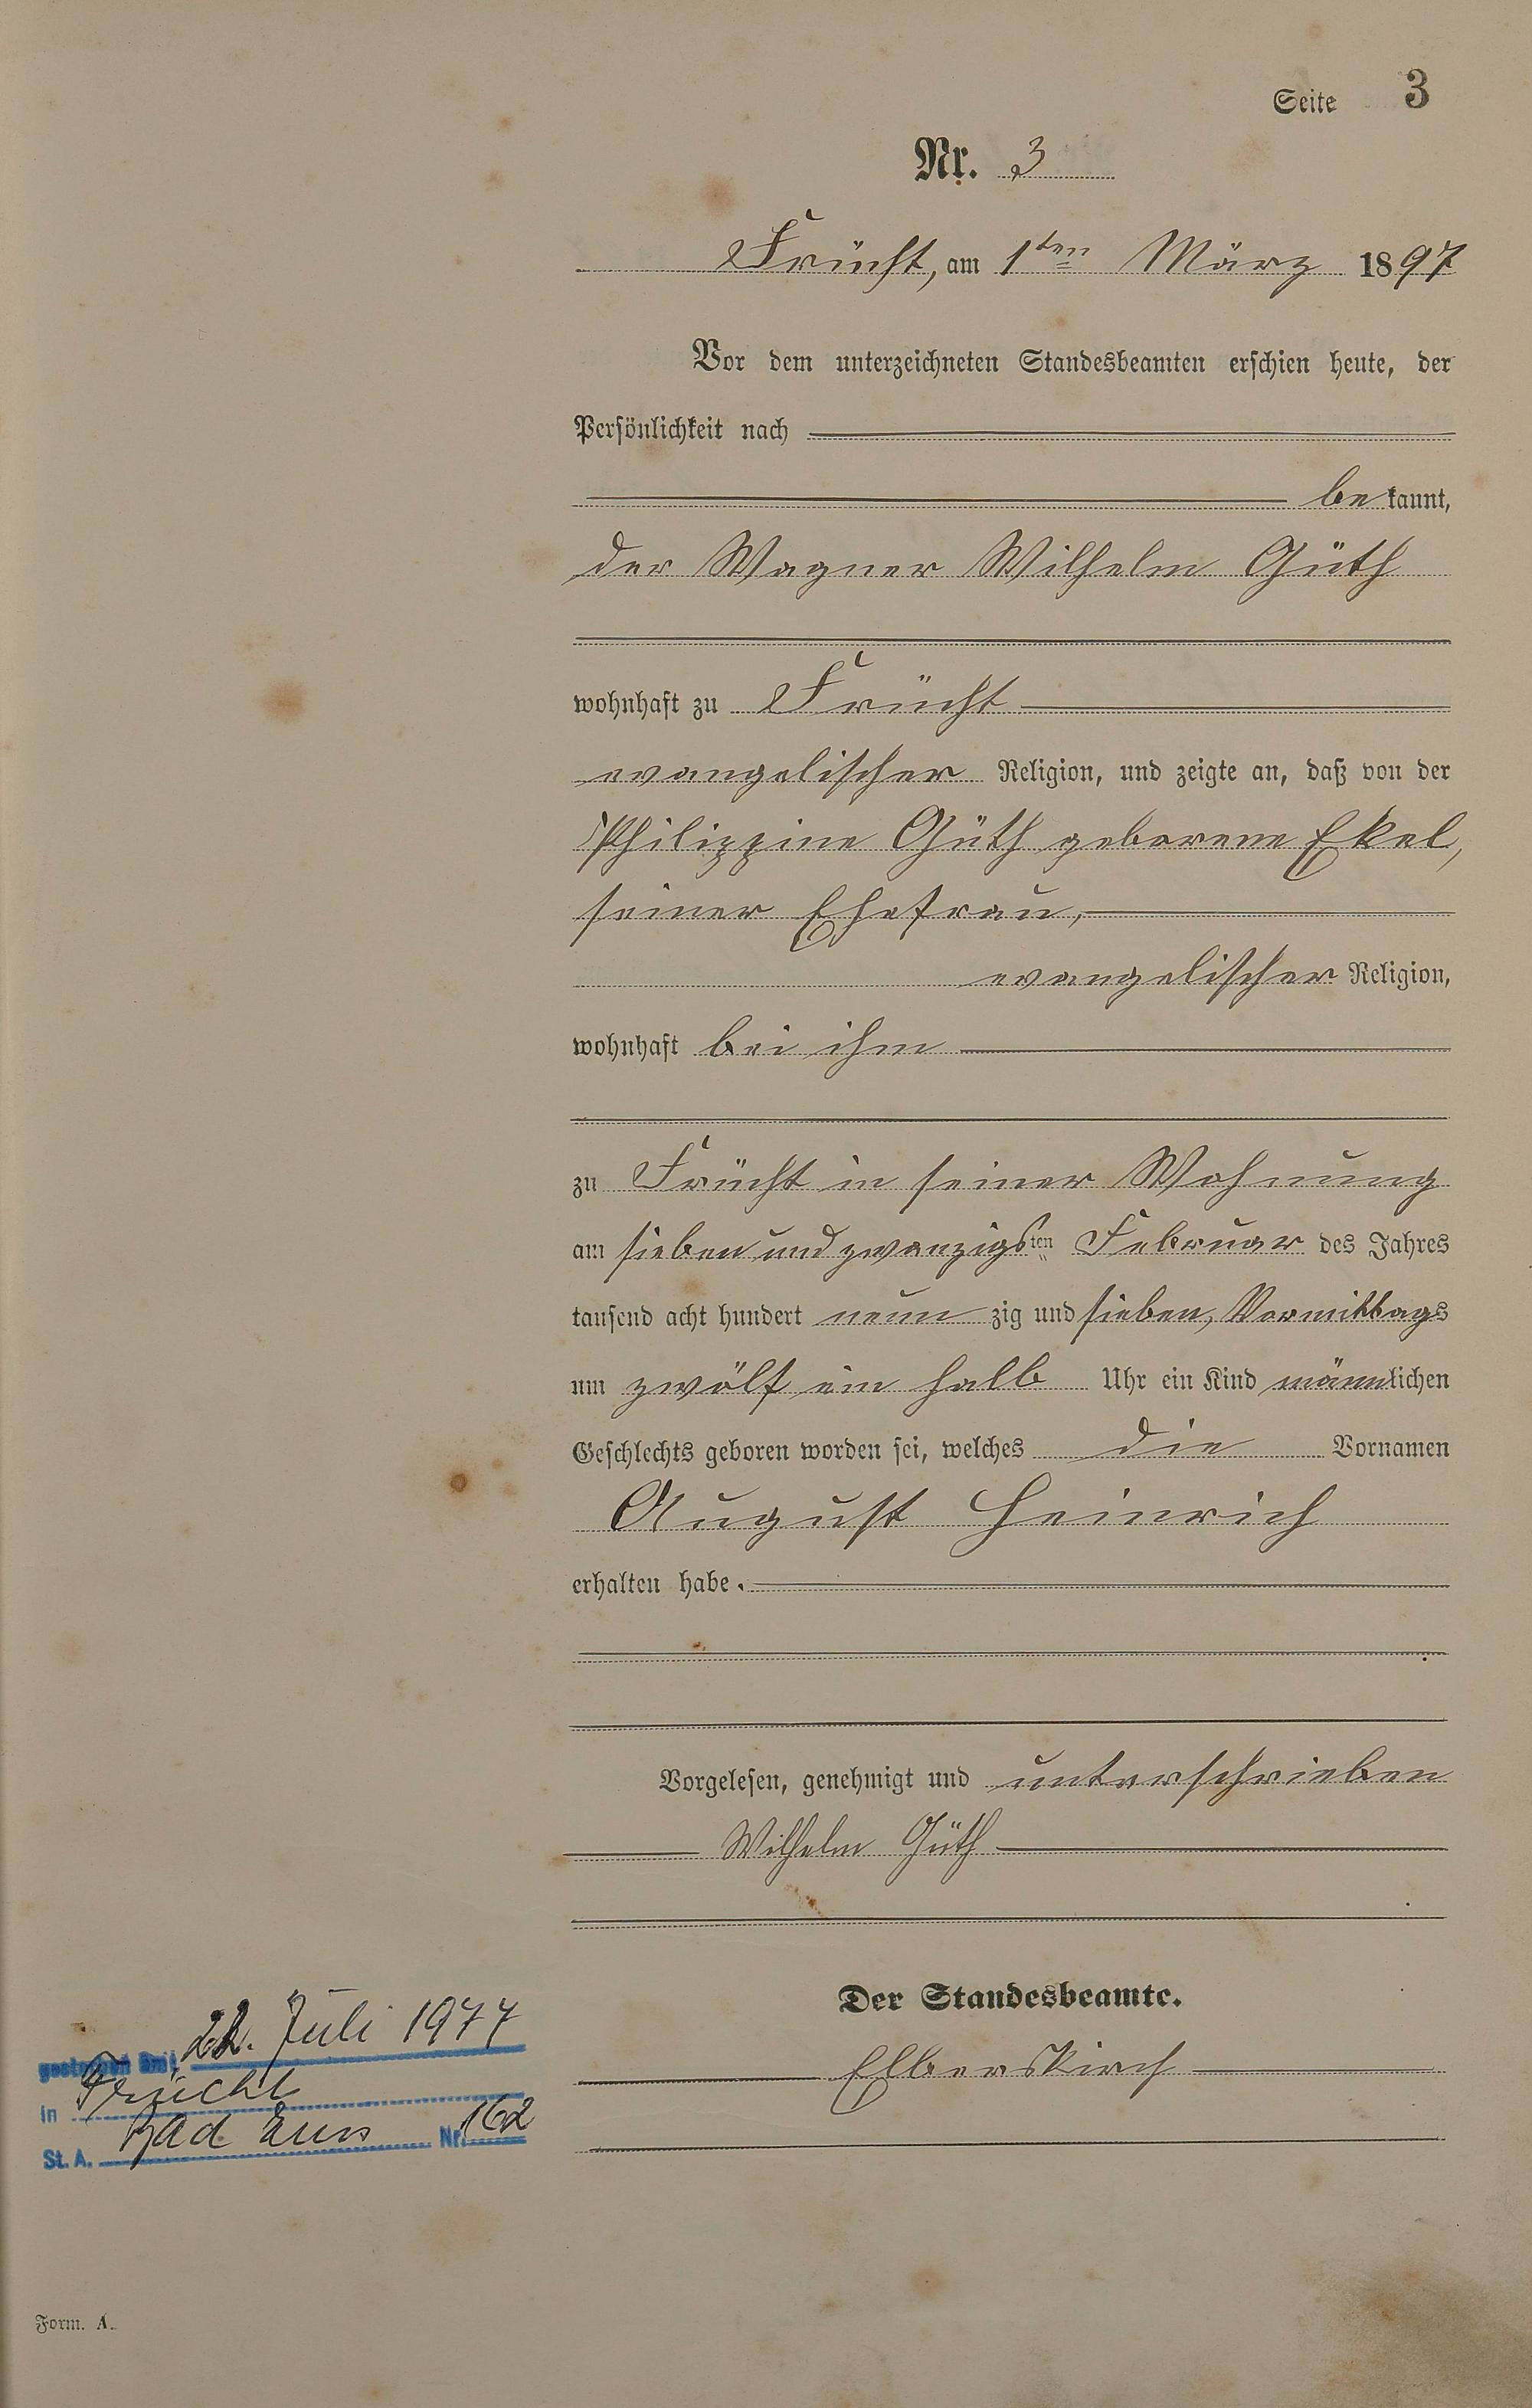 Seite 3
Nr. 3
Frücht, am 1ten März 1897
Vor dem unterzeichneten Standesbeamten erschien heute, der
Persönlichkeit nach
bekannt,
der Wagner Wilhelm Güth
wohnhaft zu Frücht
evangelischer Religion, und zeigte an, daß von der
Philippine Güth geborene Ekel,
seiner Ehefrau,
evangelischer Religion,
wohnhaft bei ihm
zu Frücht in seiner Wohnung
am sieben und zwanzigsten Februar des Jahres
tausend acht hundert neun zig und sieben, Vormittags
um zwölf ein halb Uhr ein Kind männlichen
Geschlechts geboren worden sei, welches die Vornamen
August Heinrich
erhalten habe.
Vorgelesen, genehmigt und unterschrieben
Wilhelm Güth
Der Standesbeamte.
Elberskirch
gestorben am: 22. Juli 1977
in Frücht
St. A. Bad Ems Nr. 162
Form. A.